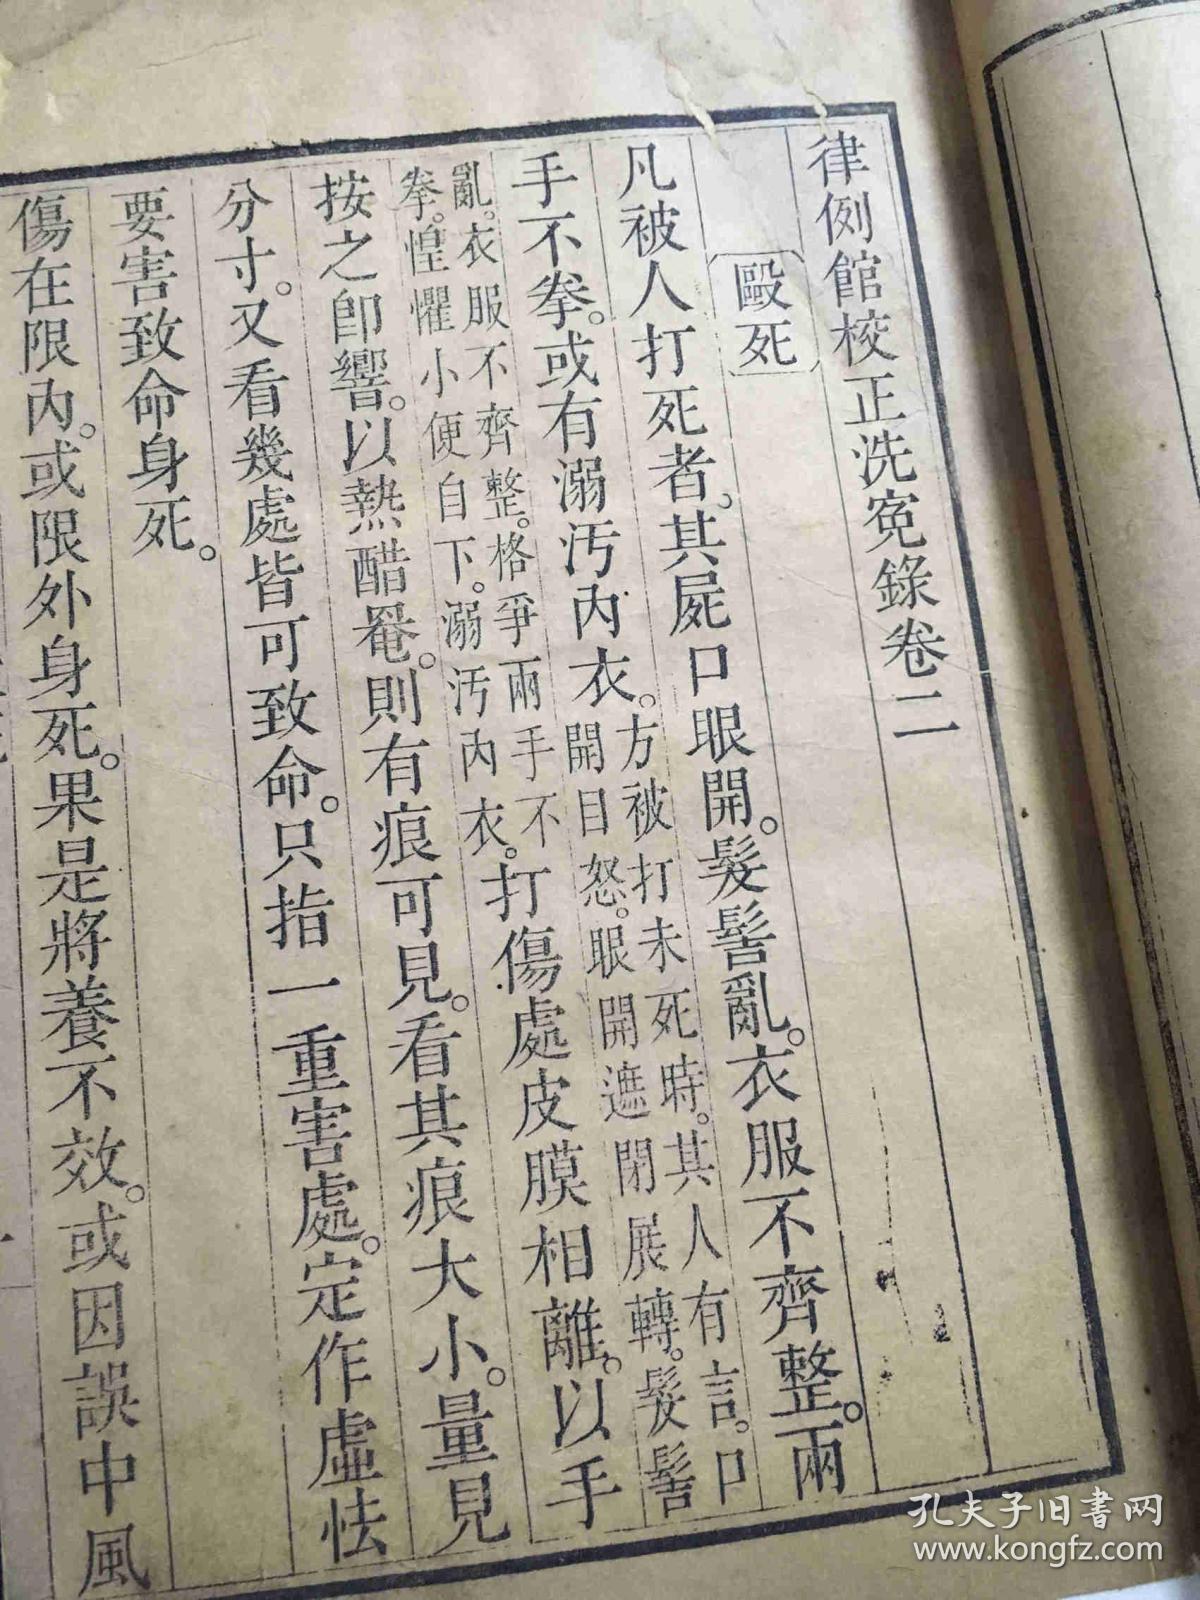 律例館校正洗寃錄卷二
毆死
凡被人打死者。其屍口眼開。髮髻亂。衣服不齊整。兩
手不拳。或有溺汚內衣。
方被打未死時。其人有言。口
開目怒。眼開遮閉展轉。髮髻
亂。衣服不齊整。格爭兩手不
拳。惶懼小便自下。溺汚內衣。
打傷處皮膜相離。以手
按之卽響。以熱醋罨。則有痕可見。看其痕大小。量見
分寸。又看幾處皆可致命。只指一重害處。定作虛怯
要害致命身死。
傷在限內。或限外身死。果是將養不效。或因誤中風
孔夫子旧书网
www.kongfz.com